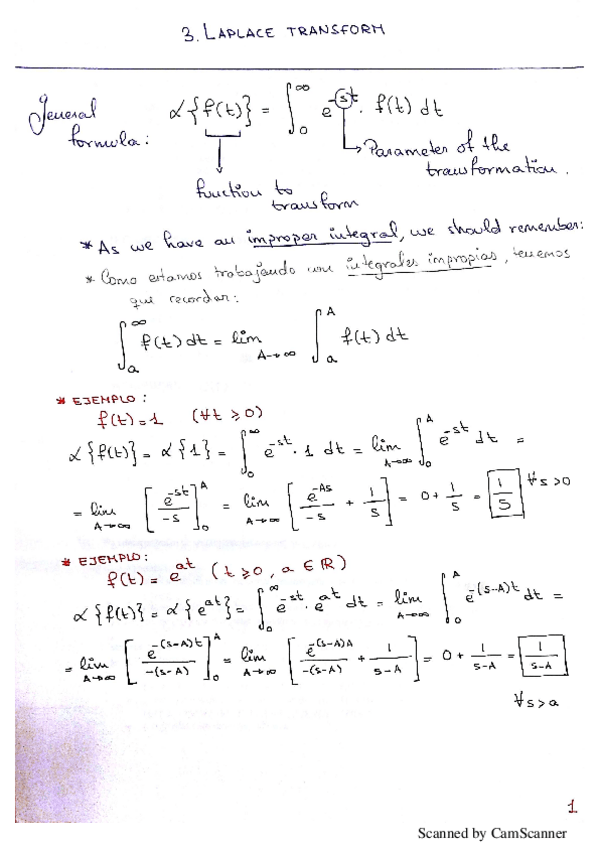 3. LAPLACE TRANSFORM
General formula: ℒ{f(t)} = ∫₀^∞ e^(-st) · f(t) dt
Parameter of the transformation.
function to transform
* As we have an improper integral, we should remember:
* Como estamos trabajando con integrales impropias, tenemos
que recordar:
∫ₐ^∞ f(t) dt = lim_(A→∞) ∫ₐ^A f(t) dt
* EJEMPLO:
f(t) = 1 (∀t ≥ 0)
ℒ{f(t)} = ℒ{1} = ∫₀^∞ e^(-st) · 1 dt = lim_(A→∞) ∫₀^A e^(-st) dt =
= lim_(A→∞) [e^(-st)/(-s)]₀^A = lim_(A→∞) [e^(-As)/(-s) + 1/s] = 0 + 1/s = 1/s ∀s>0
* EJEMPLO:
f(t) = e^(at) (t ≥ 0, a ∈ ℝ)
ℒ{f(t)} = ℒ{e^(at)} = ∫₀^∞ e^(-st) · e^(at) dt = lim_(A→∞) ∫₀^A e^(-(s-A)t) dt =
= lim_(A→∞) [e^(-(s-A)t)/(-(s-A))]₀^A = lim_(A→∞) [e^(-(s-A)A)/(-(s-A)) + 1/(s-A)] = 0 + 1/(s-A) = 1/(s-A)
∀s>a
1
Scanned by CamScanner